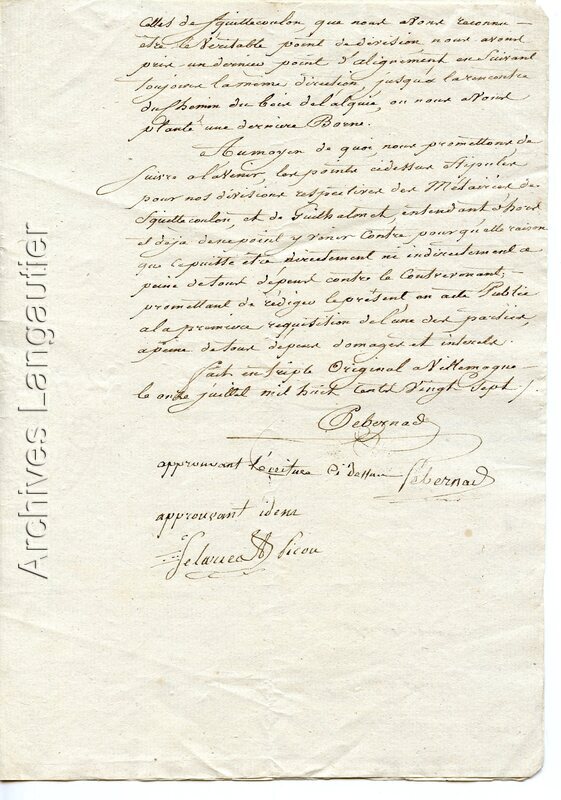 celles de Squillecoulon, que nous avons reconnu
etre le véritable point de division nous avons
pris un dernier point d'alignement en suivant
toujours la même direction, jusqu'a la rencontre
du Chemin du bois de lalquié, ou nous avons
planté une derniere Borne.
Au moyen de quoi, nous promettons de
suivre a lavenir, les points cidessus stipulés
pour nos divisions respectives des Métairies de
Squillecoulon, et de Guilhalmet, entendant d'hors
et déja de ne point y venir Contre pour quelle raison
que ce puisse etre directement ni indirectement a
peine de tous dépens contre le Contrevenant;
promettant de rédiger le présent en acte Public
a la premiere requisition de l'une des parties,
a peine de tous depens domages et interets.
Fait en triple Original a Villemagne
le onze juillet mil huit cents Vingt Sept /.
Pebernad
approuvant lécriture Cidessus Pebernad
approuvant idem
Picou
Archives Langautier